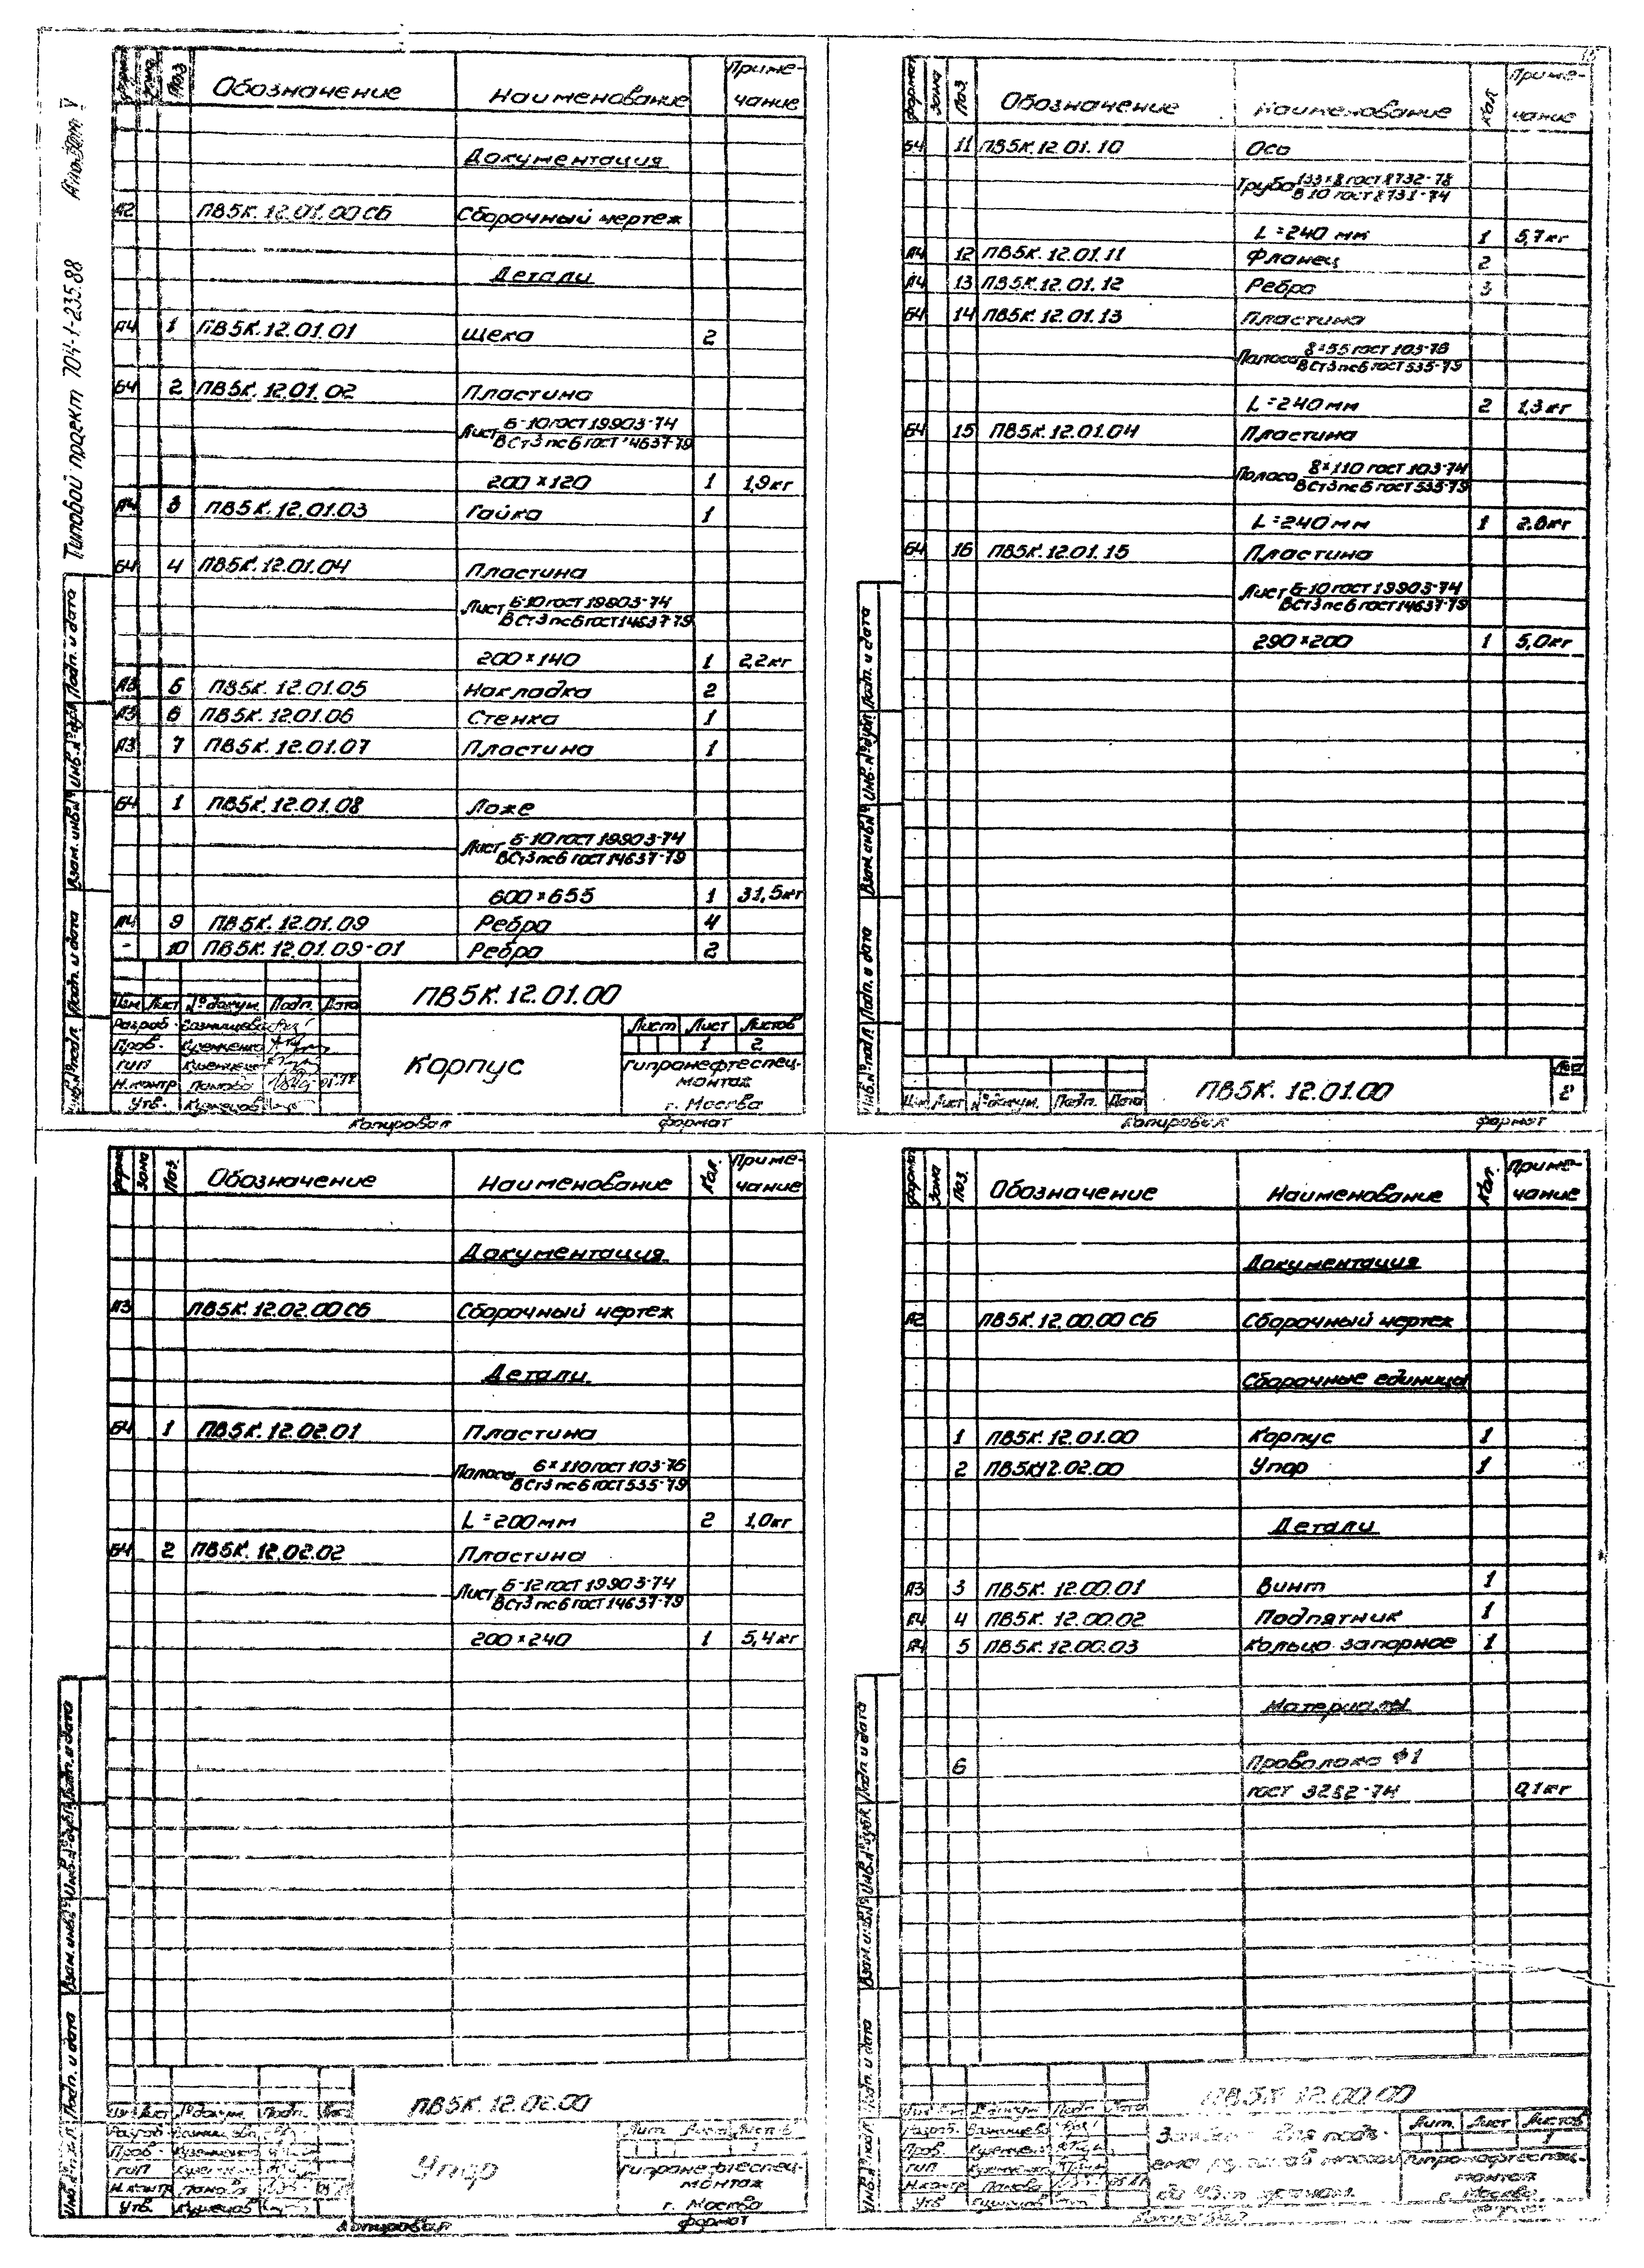 Типовой проект 704-1-235.88 Альбом V
формат Зона Поз. Обозначение Наименование Приме-чание
Документация
А2 ПВ5К.12.01.00СБ Сборочный чертеж
Детали
А4 1 ПВ5К.12.01.01 Щека 2
Б4 2 ПВ5К.12.01.02 Пластина
Лист Б-10 гост 19903-74
ВСт3пс6 гост 14637-79
200×120 1 1,9кг
А4 3 ПВ5К.12.01.03 Гайка 1
Б4 4 ПВ5К.12.01.04 Пластина
Лист Б-10 гост 19903-74
ВСт3пс6 гост 14637-79
200×140 1 2,2кг
А3 5 ПВ5К.12.01.05 Накладка 2
А3 6 ПВ5К.12.01.06 Стенка 1
А3 7 ПВ5К.12.01.07 Пластина 1
Б4 1 ПВ5К.12.01.08 Ложе
Лист Б-10 гост 19903-74
ВСт3пс6 гост 14637-79
600×655 1 31,5кг
А4 9 ПВ5К.12.01.09 Ребро 4
- 10 ПВ5К.12.01.09-01 Ребро 2
ПВ5К.12.01.00
Изм Лист № докум. Подп. Дата
Разраб.
Пров.
ГИП
Н.контр
Утв. Кузнецов
Корпус
Лист Лист Листов
1 2
Гипронефтеспец-
монтаж
г. Москва
Копировал формат
Инв.№подл Подп. и дата Взам. инв.№ Инв.№дубл Подп. и дата
формат Зона Поз. Обозначение Наименование Кол. Приме-чание
Б4 11 ПВ5К.12.01.10 Ось
Труба 133×8 гост 8732-78
В 10 гост 8731-74
L=240 мм 1 5,7кг
А4 12 ПВ5К.12.01.11 Фланец 2
А4 13 ПВ5К.12.01.12 Ребро 3
Б4 14 ПВ5К.12.01.13 Пластина
Полоса 8×55 гост 103-76
ВСт3пс6 гост 535-79
L=240мм 2 1,3кг
Б4 15 ПВ5К.12.01.04 Пластина
Полоса 8×110 гост 103-74
ВСт3пс6 гост 535-79
L=240мм 1 2.8кг
Б4 16 ПВ5К.12.01.15 Пластина
Лист Б-10 гост 19903-74
ВСт3пс6 гост 14637-79
290×200 1 5,0кг
Изм Лист № докум. Подп. Дата
ПВ5К.12.01.00
Лист
2
Копировал формат
Инв.№подл Подп. и дата Взам инв.№ Инв.№дубл Подп. и дата
формат Зона Поз. Обозначение Наименование Кол. Приме-чание
Документация
А3 ПВ5К.12.02.00СБ Сборочный чертеж
Детали
Б4 1 ПВ5К.12.02.01 Пластина
Полоса 6×110 гост 103-76
ВСт3пс6 гост 535-79
L=200мм 2 1,0кг
Б4 2 ПВ5К.12.02.02 Пластина
Лист Б-12 гост 19903-74
ВСт3пс6 гост 14637-79
200×240 1 5,4кг
ПВ5К.12.02.00
Изм Лист № докум. Подп.
Разраб.
Пров.
ГИП
Н.контр
Утв. Кузнецов
Упор
Лит. Лист Листов
1
Гипронефтеспец-
монтаж
г. Москва
Копировал формат
Инв.№подл Подп. и дата Взам. инв.№ Инв.№дубл Подп. и дата
формат Зона Поз. Обозначение Наименование Кол. Приме-чание
Документация
А2 ПВ5К.12.00.00СБ Сборочный чертеж
Сборочные единицы
1 ПВ5К.12.01.00 Корпус 1
2 ПВ5К12.02.00 Упор 1
Детали
А3 3 ПВ5К.12.00.01 Винт 1
А4 4 ПВ5К.12.00.02 Подпятник 1
А4 5 ПВ5К.12.00.03 Кольцо запорное 1
Материалы
6 Проволока Ф1
гост 3282-74 0,1кг
ПВ5К.12.00.00
Разраб.
Пров.
ГИП
Н.контр
Утв
для подъ-
ема
Лит. Лист Листов
1
Гипронефтеспец-
монтаж
г. Москва
Инв.№подл Подп. и дата Взам. инв.№ Инв.№дубл Подп. и дата